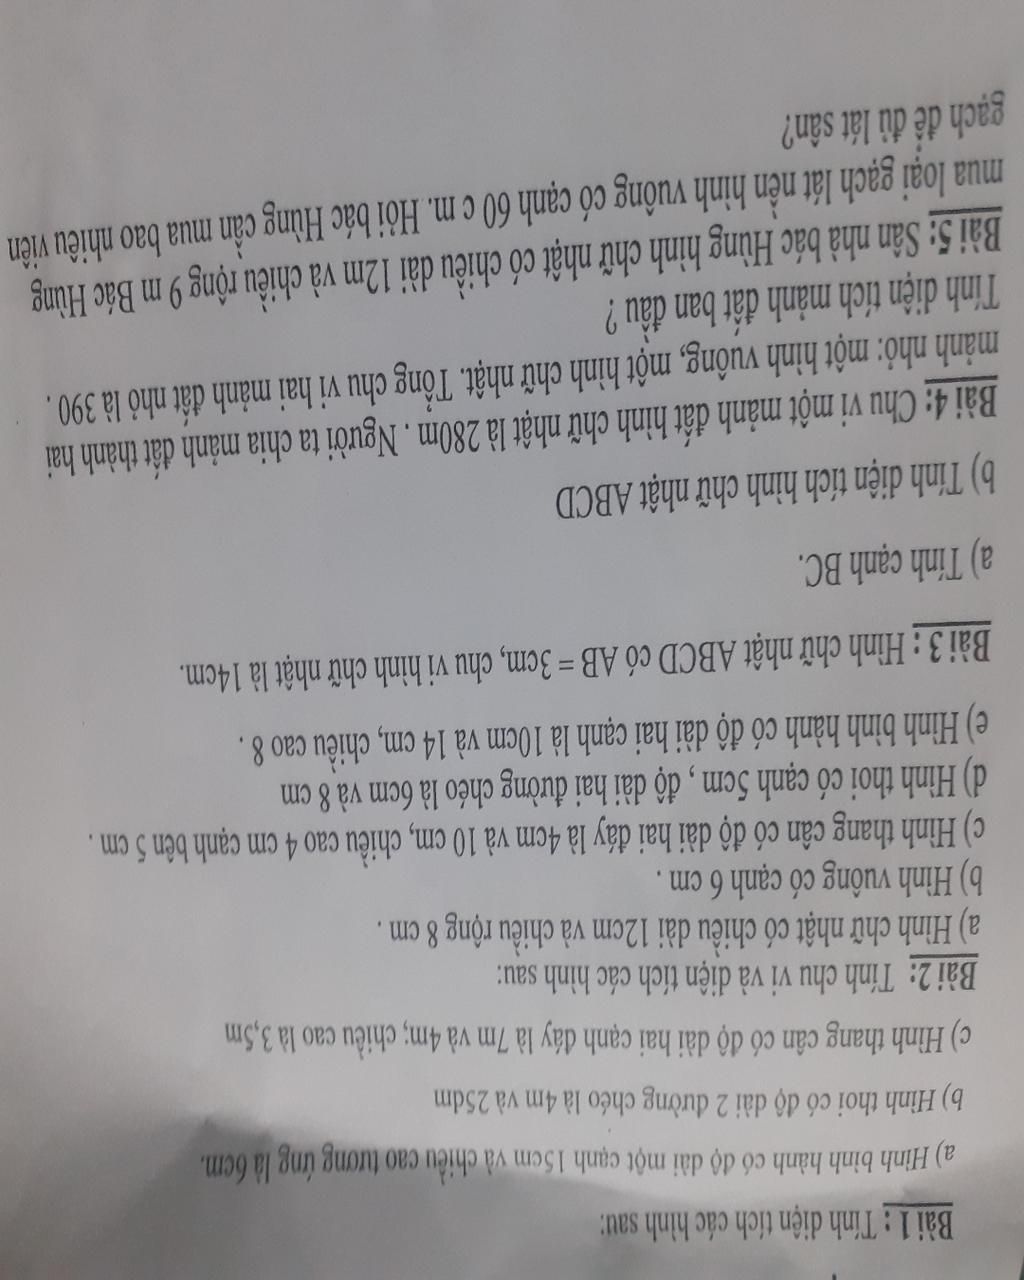 Bài 1 : Tính diện tích các hình sau:
a) Hình bình hành có độ dài một cạnh 15cm và chiều cao tương ứng là 6cm.
b) Hình thoi có độ dài 2 đường chéo là 4m và 25dm
c) Hình thang cân có độ dài hai cạnh đáy là 7m và 4m; chiều cao là 3,5m
Bài 2: Tính chu vi và diện tích các hình sau:
a) Hình chữ nhật có chiều dài 12cm và chiều rộng 8 cm .
b) Hình vuông có cạnh 6 cm .
c) Hình thang cân có độ dài hai đáy là 4cm và 10 cm, chiều cao 4 cm cạnh bên 5 cm .
d) Hình thoi có cạnh 5cm , độ dài hai đường chéo là 6cm và 8 cm
e) Hình bình hành có độ dài hai cạnh là 10cm và 14 cm, chiều cao 8 .
Bài 3 : Hình chữ nhật ABCD có AB = 3cm, chu vi hình chữ nhật là 14cm.
a) Tính cạnh BC.
b) Tính diện tích hình chữ nhật ABCD
Bài 4: Chu vi một mảnh đất hình chữ nhật là 280m . Người ta chia mảnh đất thành hai
mảnh nhỏ: một hình vuông, một hình chữ nhật. Tổng chu vi hai mảnh đất nhỏ là 390 .
Tính diện tích mảnh đất ban đầu ?
Bài 5: Sân nhà bác Hùng hình chữ nhật có chiều dài 12m và chiều rộng 9 m Bác Hùng
mua loại gạch lát nền hình vuông có cạnh 60 c m. Hỏi bác Hùng cần mua bao nhiêu viên
gạch để đủ lát sân?